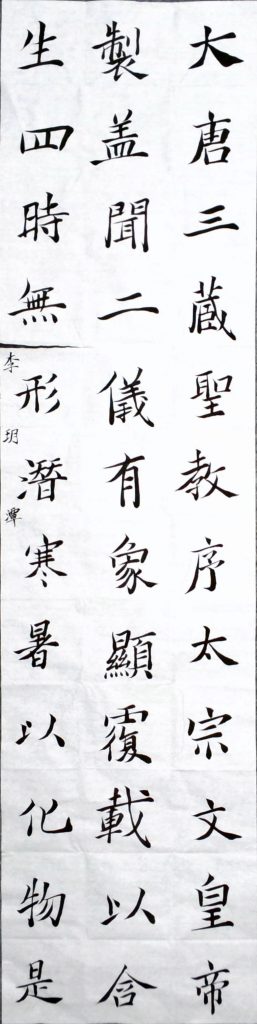 大唐三藏聖教序太宗文皇帝
製盖聞二儀有象顯覆載以含
生四時無形潛寒暑以化物是
李玥潭